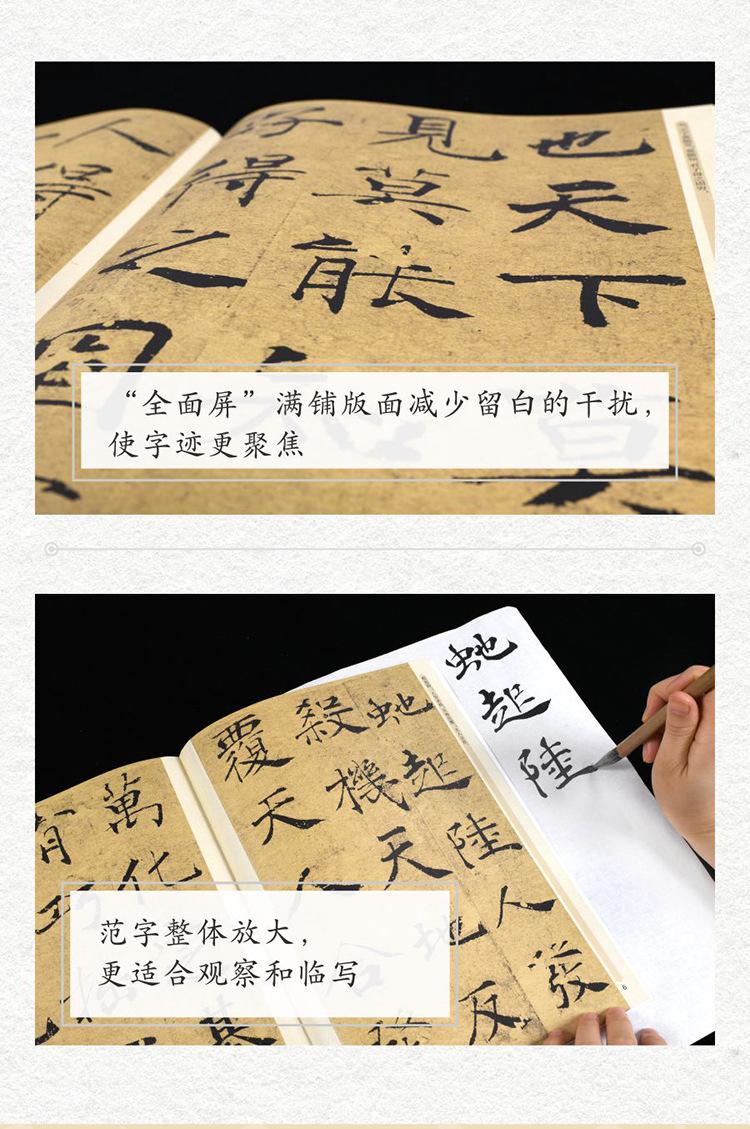 也天下
見莫能
得之固
人得
“全面屏”满铺版面减少留白的干扰，
使字迹更聚焦
虵起陸
虵起陸人發
殺機天地反
覆天人合
萬化
基
有
范字整体放大，
更适合观察和临写
6